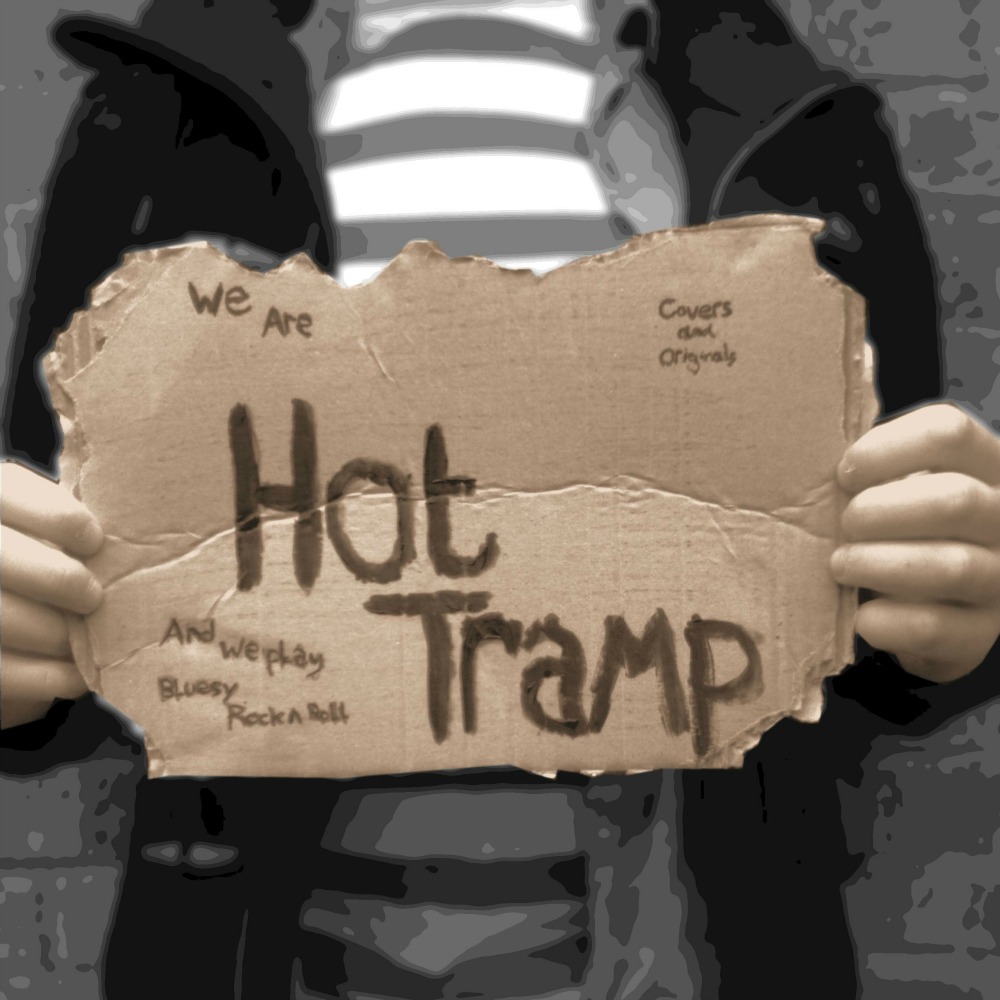 We
Are
Covers
and
Originals
Hot
Tramp
And
we play
Bluesy
Rock n Roll